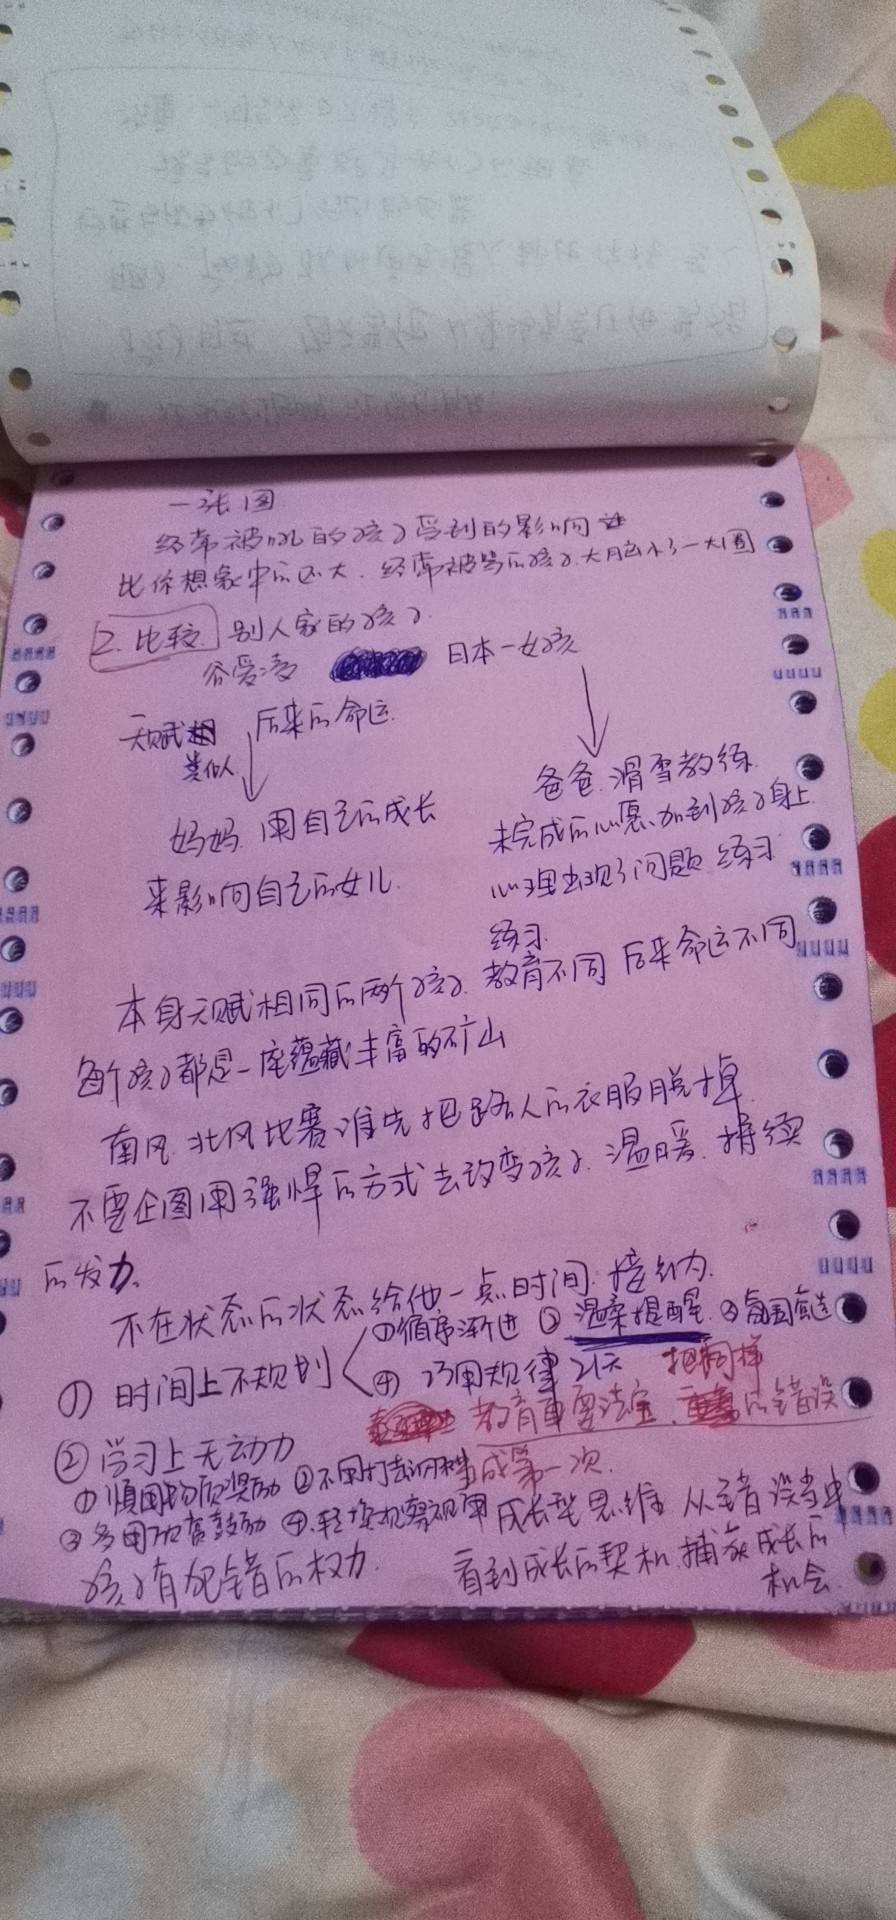 一张图
经常被吼的孩子受到的影响
比你想象中的还大.经常被骂的孩子.大脑小了一大圈
2.比较. 别人家的孩子
谷爱凌 日本一女孩
天赋相 后来的命运.
类似
爸爸.滑雪教练.
妈妈 用自己的成长
未完成的心愿.加到孩子身上.
来影响自己的女儿.
心理出现了问题 练习
练习.
本身天赋相同的两个孩子.教育不同 后来命运不同
每个孩子都是一座蕴藏丰富的矿山
南风.北风比赛谁先把路人的衣服脱掉.
不要企图用强悍的方式去改变孩子.温暖.持续
的发力.
不在状态的状态给他一点时间.接纳.
①循序渐进 ②温柔提醒.③氛围营造
① 时间上不规划
④ 巧用规律21天 把同样
教育重要法宝. 的错误
② 学习上无动力 当成第一次.
①慎用物质奖励 ②不用打击
③多用 鼓励 ④ 成长型思维 从错误当中
孩子有犯错的权力. 看到成长的契机.捕获成长的
机会.